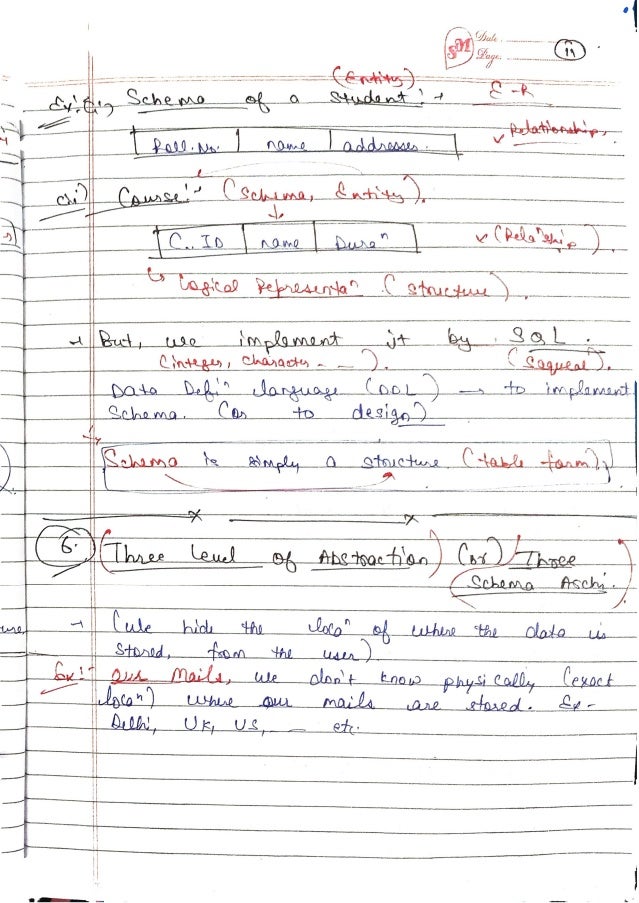 SM Date
Page
11
(Entity)
Ex: (i) Schema of a student: → E-R
Roll. No. | name | addresses. ✓ Relationship.
(ii) Course:- (Schema, Entity).
C. ID | name | Duraⁿ ✓ (Relaⁿship)
↳ Logical Representaⁿ. (structure).
→ But, we implement it by SQL.
(integer, character - - ). (Saqueal).
Data Defiⁿ language (DDL) → to implement
Schema. (or to design)
→ Schema is simply a structure. (table form).
6. (Three level of Abstraction) (or) Three
Schema Archi.
→ (we hide the locaⁿ of where the data is
stored, from the user)
Ex:- our Mails, we don't know physically (exact
locaⁿ) where our mails are stored. Ex-
Delhi, UK, US, -- etc.